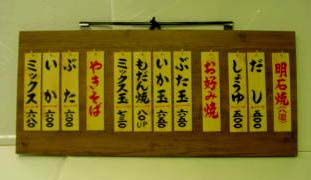 明石焼
だし 五〇〇
しょうゆ 五〇〇
お好み焼
ぶた玉 六五〇
いか玉 六五〇
もだん焼 八〇UP
ミックス玉 七五〇
やきそば
ぶた 六〇〇
いか 六〇〇
ミックス 六八〇